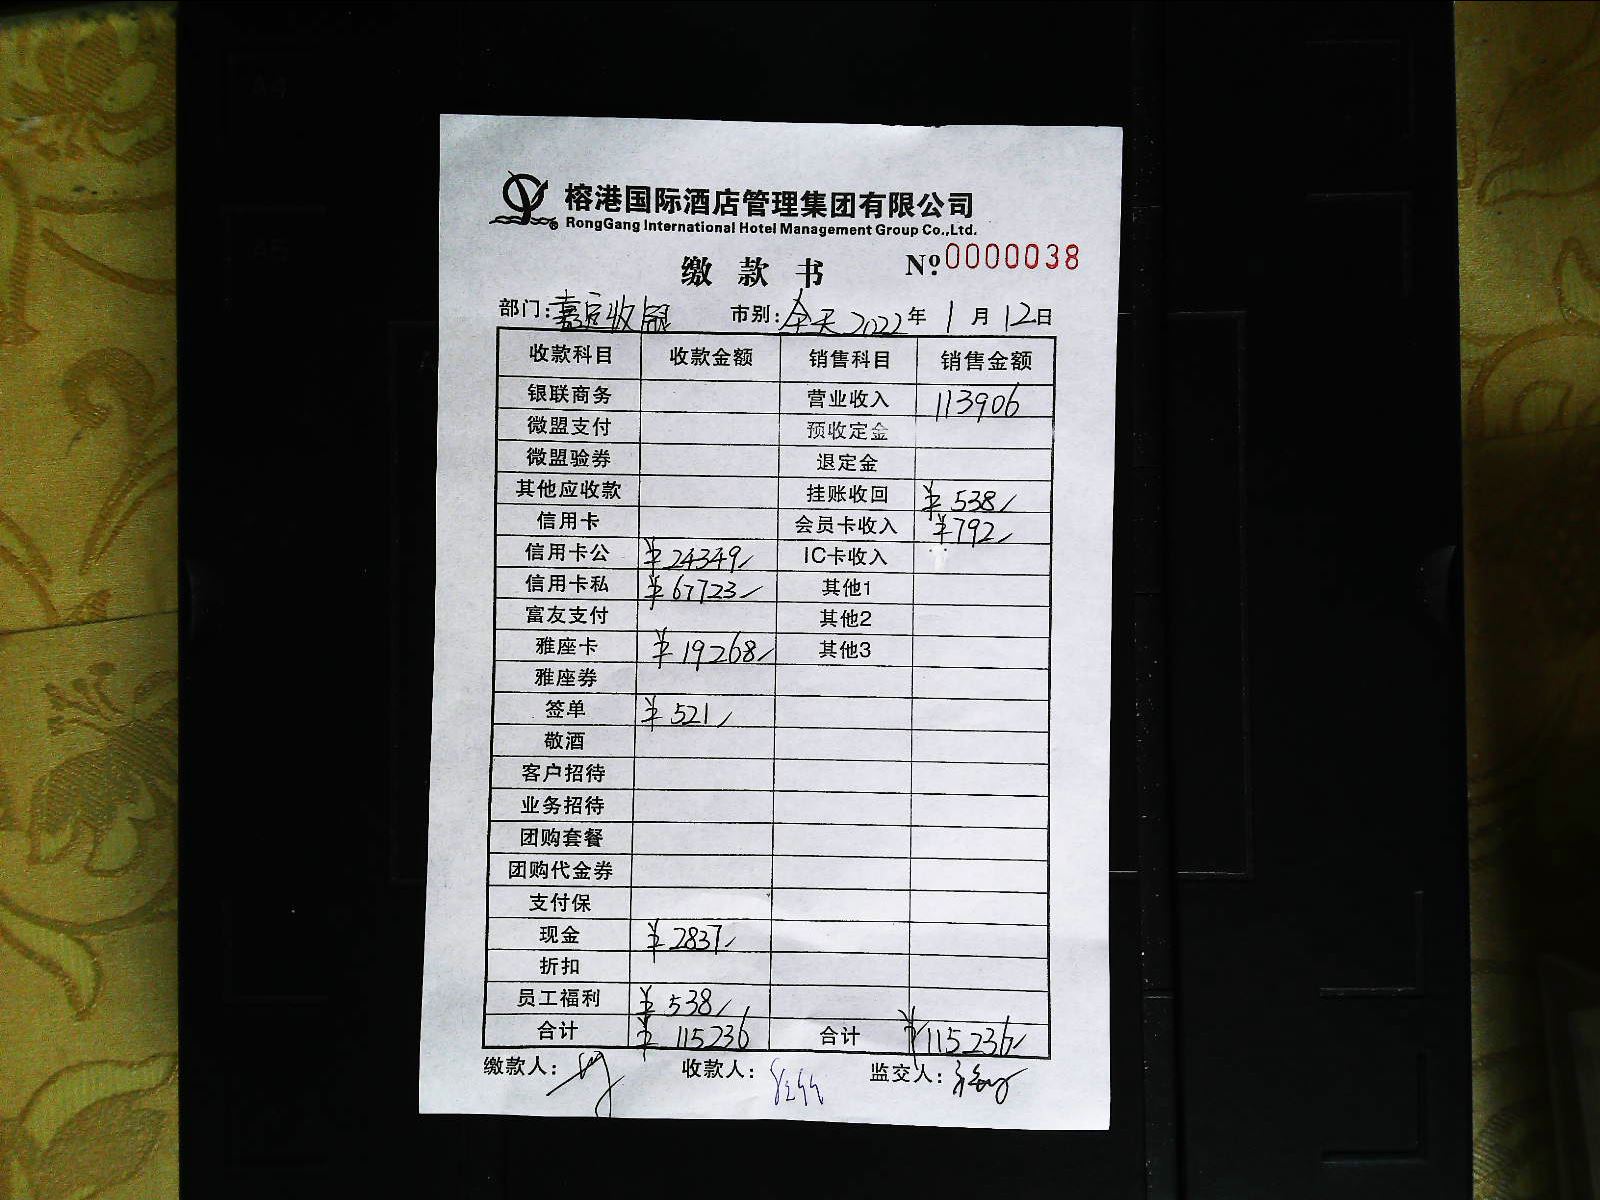 榕港国际酒店管理集团有限公司
RongGang International Hotel Management Group Co.,Ltd.
缴款书 Nº:0000038
部门:嘉定收银 市别:全天 2022年 1月 12日
收款科目 收款金额 销售科目 销售金额
银联商务 营业收入 113906
微盟支付 预收定金
微盟验券 退定金
其他应收款 挂账收回 ¥538/
信用卡 会员卡收入 ¥792/
信用卡公 ¥24349/ IC卡收入
信用卡私 ¥67723/ 其他1
富友支付 其他2
雅座卡 ¥19268/ 其他3
雅座券
签单 ¥521/
敬酒
客户招待
业务招待
团购套餐
团购代金券
支付保
现金 ¥2837/
折扣
员工福利 ¥538/
合计 ¥115236 合计 ¥115236/
缴款人: 收款人: 监交人: